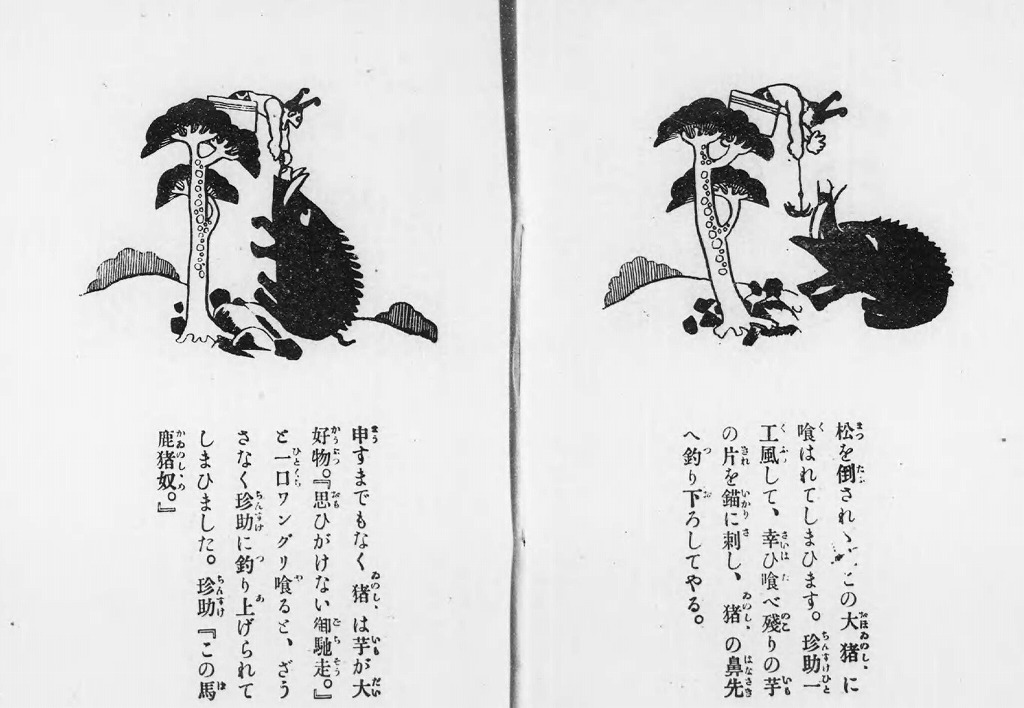 松を倒されゝばこの大猪に
喰はれてしまひます。珍助一
工風して、幸ひ喰べ殘りの芋
の片を錨に刺し、猪の鼻先
へ釣り下ろしてやる。
申すまでもなく猪は芋が大
好物。『思ひがけない御馳走。』
と一口ワングリ喰ると、ざう
さなく珍助に釣り上げられて
しまひました。珍助『この馬
鹿猪奴。』